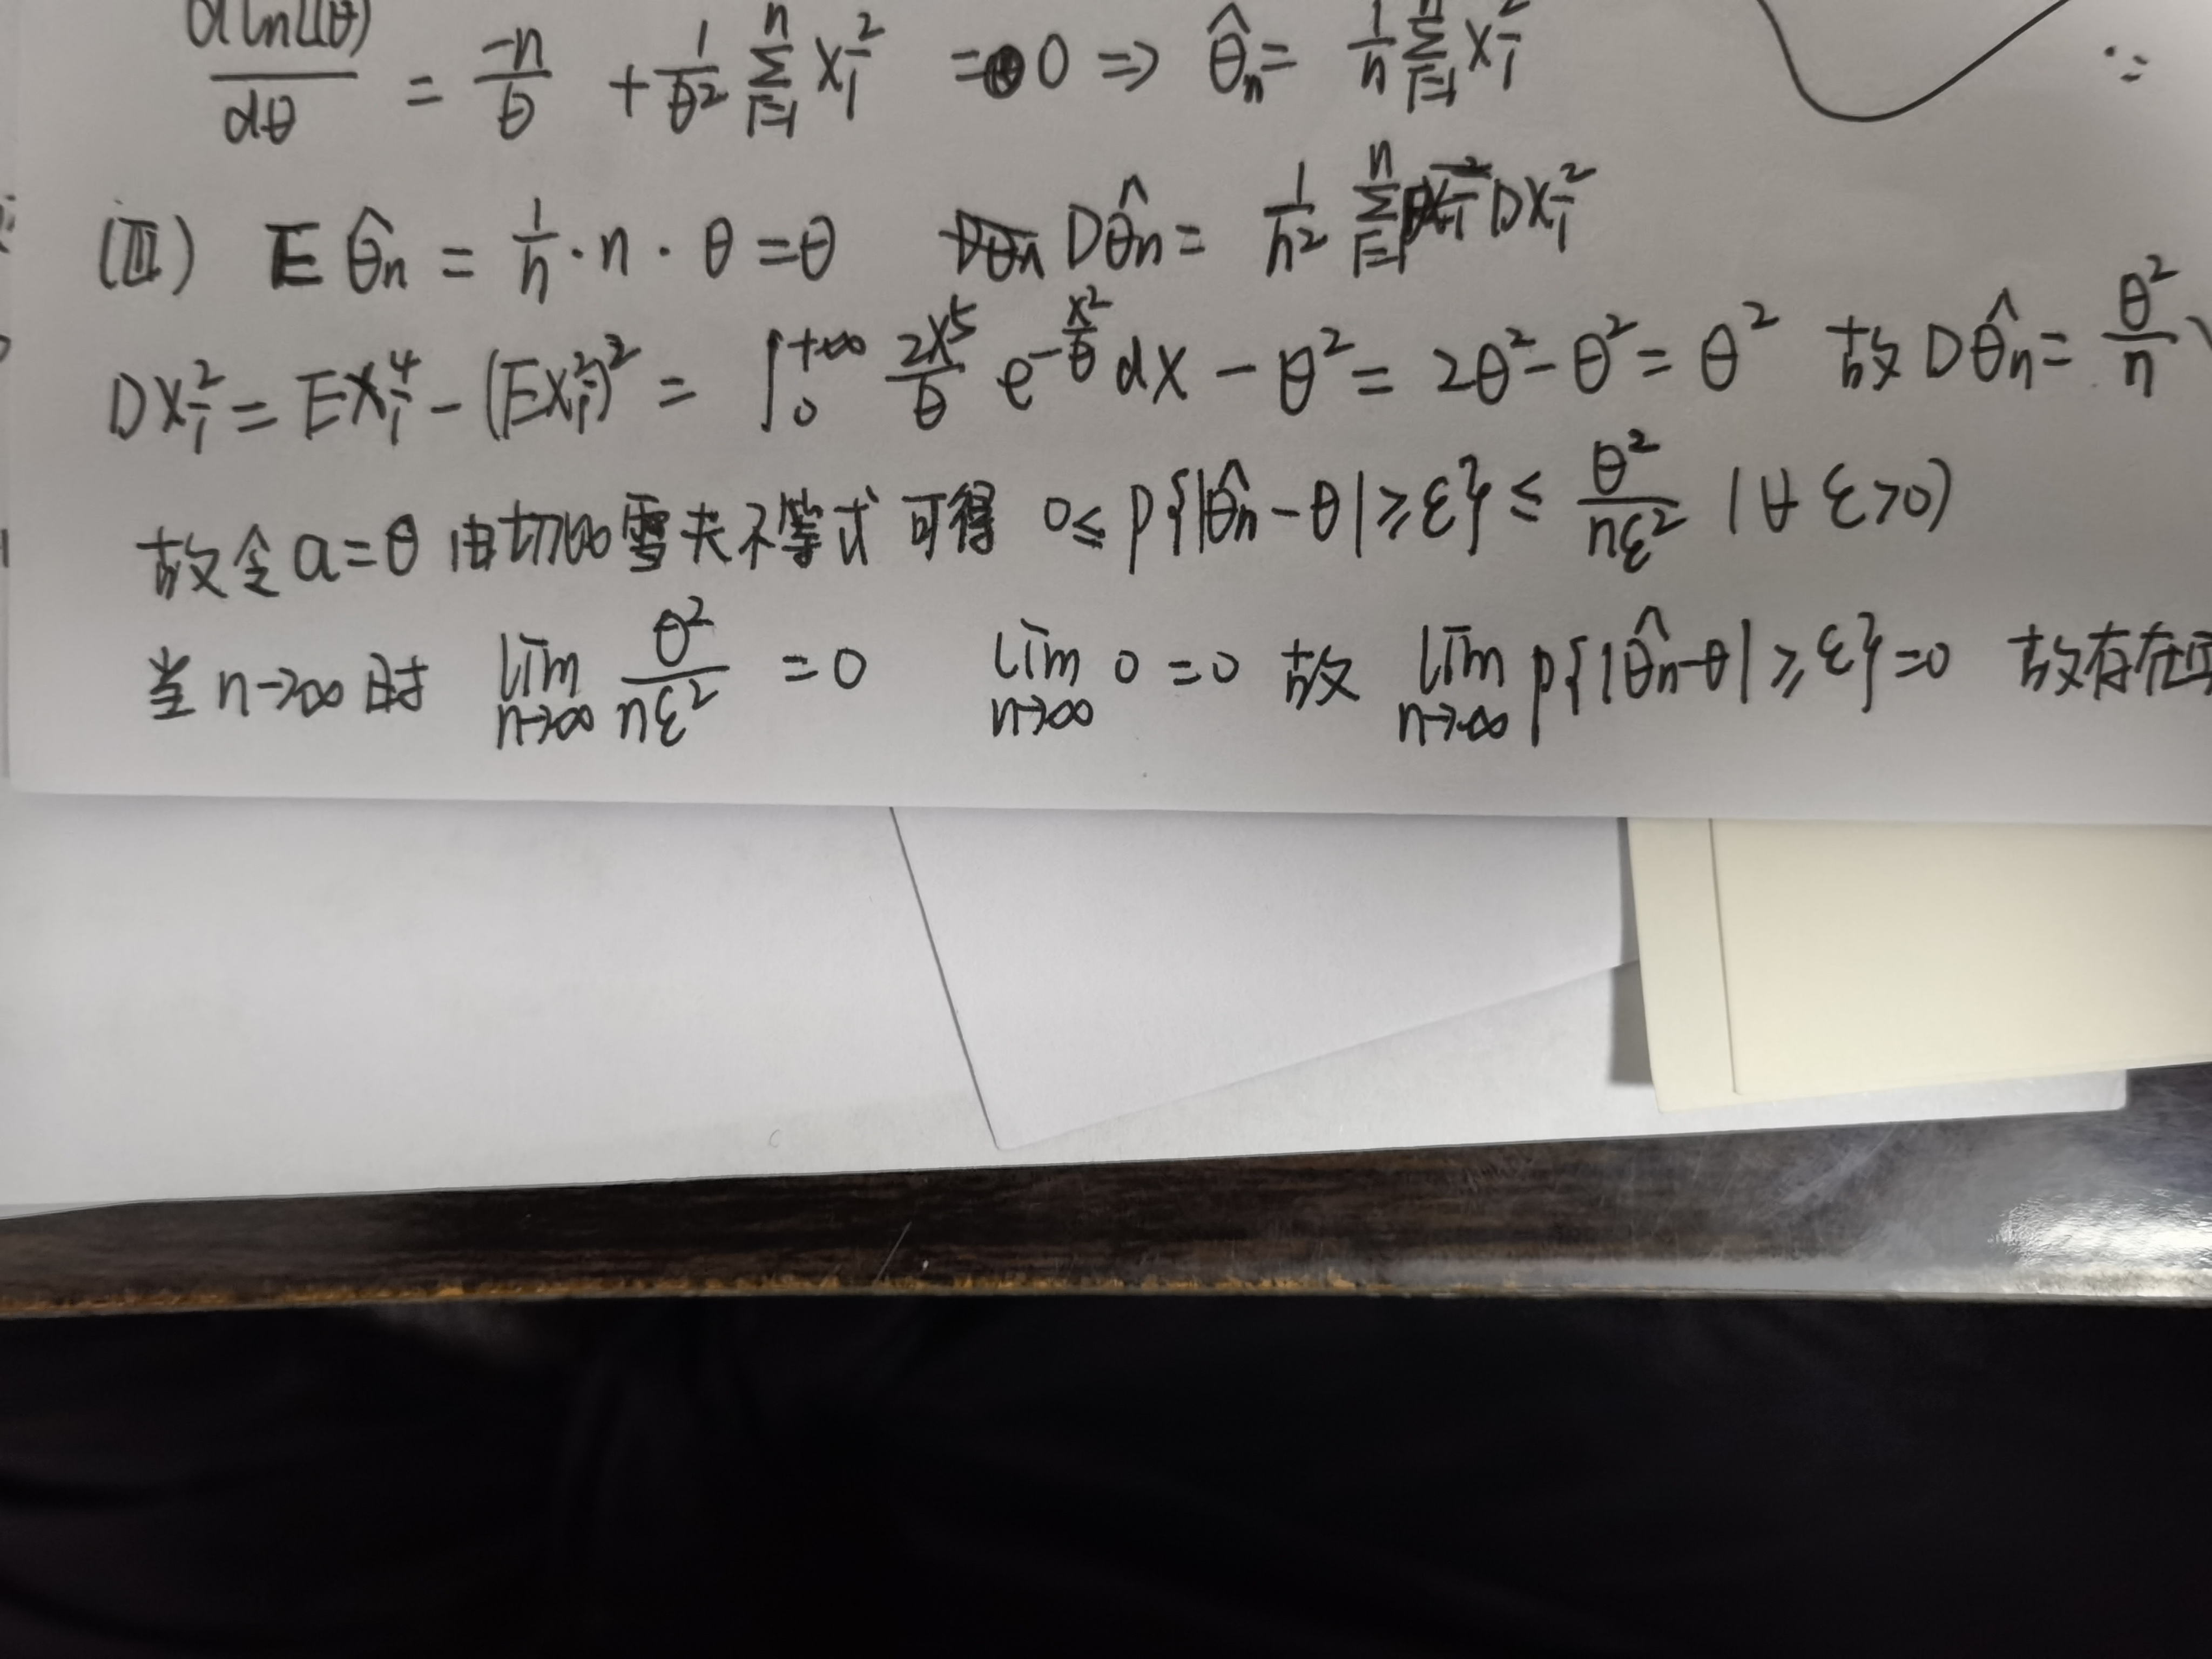 dlnL(θ)/dθ = -n/θ + 1/θ² Σ_{i=1}^{n} X_i² = 0 ⇒ θ̂_n = 1/n Σ_{i=1}^{n} X_i² ∵
(Ⅲ) E θ̂_n = 1/n · n · θ = θ Dθ̂_n = 1/n² Σ_{i=1}^{n} DX_i²
DX_i² = EX_i⁴ - (EX_i²)² = ∫_0^{+∞} 2x⁵/θ e^{-x²/θ} dx - θ² = 2θ² - θ² = θ² 故 Dθ̂_n = θ²/n
故令 a = θ 由切比雪夫不等式可得 0 ≤ P{|θ̂_n - θ| ≥ ε} ≤ θ²/nε² (∀ ε>0)
当 n→∞ 时 lim_{n→∞} θ²/nε² = 0 lim_{n→∞} 0 = 0 故 lim_{n→∞} P{|θ̂_n - θ| ≥ ε} = 0 故存在